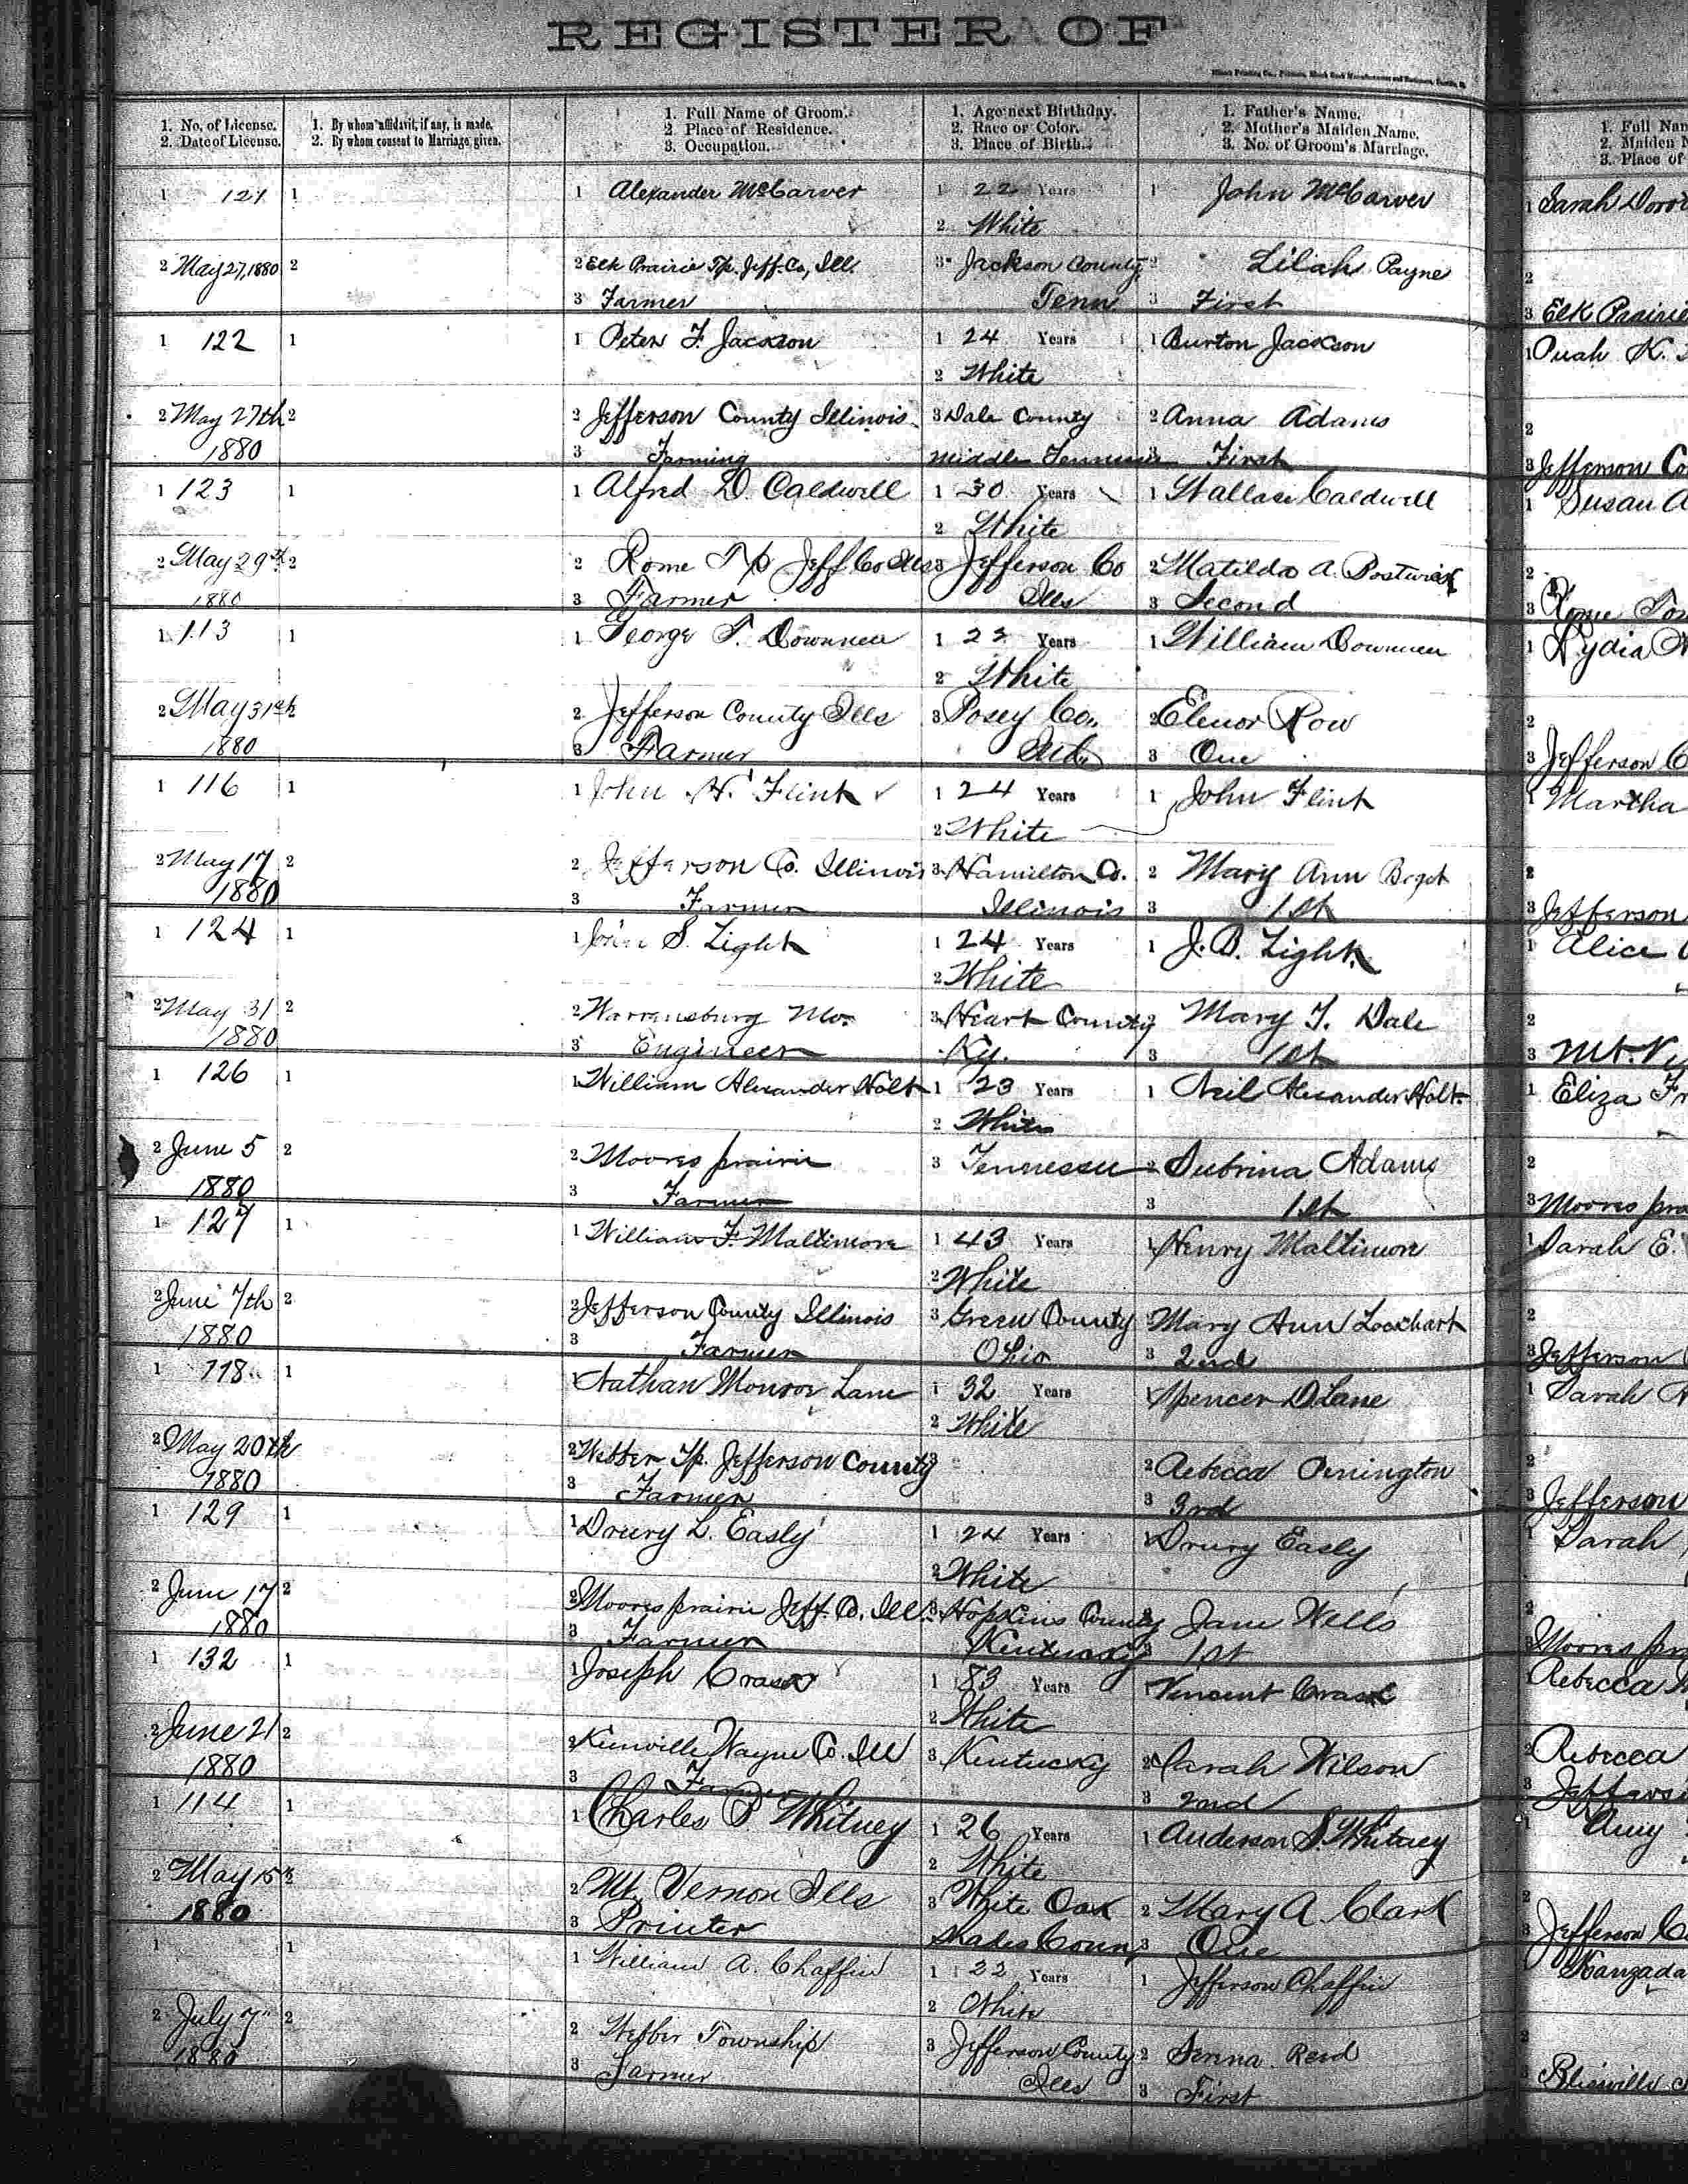 REGISTER OF
1. No. of License.
2. Date of License.
1. By whom affidavit, if any, is made.
2. By whom consent to Marriage given.
1. Full Name of Groom.
2. Place of Residence.
3. Occupation.
1. Age next Birthday.
2. Race or Color.
3. Place of Birth.
1. Father's Name.
2. Mother's Maiden Name.
3. No. of Groom's Marriage.
1. Full Nam
2. Maiden N
3. Place of
1 121 1 1 Alexander McCarver 1 22 Years 1 John McCarver 1 Sarah
2 White
2 May 27, 1880 2 2 Elk Prairie Tp. Jeff. Co, Ill. 3 Jackson County 2 Lilah Payne 2
3 Farmer Tenn 3 First 3 Elk Prairie
1 122 1 1 Peter F. Jackson 1 24 Years 1 Burton Jackson 1 K.
2 White
2 May 27th 2 2 Jefferson County Illinois 3 Dale County 2 Anna Adams 2
1880 3 Farming Middle Tennessee 3 First 3 Jefferson Co
1 123 1 1 Alfred D. Caldwell 1 30 Years 1 Wallace Caldwell 1 Susan A
2 White
2 May 29th 2 2 Rome Tp Jeff Co Ills 3 Jefferson Co 2 Matilda A. 2
1880 3 Farmer Ills 3 Second 3 Rome Tow
1 113 1 1 George T. Downen 1 23 Years 1 William Downen 1 Lydia
2 White
2 May 31st 2 2 Jefferson County Ills 3 Posey Co. 2 Elenor Row 2
1880 3 Farmer Ind. 3 One 3 Jefferson C
1 116 1 1 John H. Flint 1 24 Years 1 John Flint 1 Martha
2 White
2 May 17 2 2 Jefferson Co. Illinois 3 Hamilton Co. 2 Mary Ann 2
1880 3 Farmer Illinois 3 1st 3 Jefferson
1 124 1 1 John S. Light 1 24 Years 1 J. B. Light. 1 Alice
2 White
2 May 31 2 2 Warrensburg Mo. 3 Heart County 2 Mary T. Dale 2
1880 3 Engineer Ky. 3 1st 3 Mt. Ve
1 126 1 1 William Alexander Holt 1 23 Years 1 Neil Alexander Holt. 1 Eliza Fr
2 White
2 June 5 2 2 Moores prairie 3 Tennessee 2 Subrina Adams 2
1880 3 Farmer 3 1st 3 Moores pra
1 127 1 1 William F. Maltimore 1 43 Years 1 Henry Maltimore 1 Sarah E.
2 White
2 June 7th 2 2 Jefferson County Illinois 3 Green County 2 Mary Ann Lockhart 2
1880 3 Farmer Ohio 3 2nd 3 Jefferson
1 118 1 1 Nathan Monroe Lane 1 32 Years 1 Spencer D Lane 1 Sarah
2 White
2 May 20th 2 2 Webber Tp. Jefferson County 3 2 Rebecca Penington 2
1880 3 Farmer 3 3rd 3 Jefferson
1 129 1 1 Drury L. Easly 1 24 Years 1 Drury Easly 1 Sarah
2 White
2 June 17 2 2 Moores prairie Jeff. Co. Ill. 3 Hopkins County 2 Jane Wells 2
1880 3 Farmer Kentucky 3 1st 3 Moores pra
1 132 1 1 Joseph Crask 1 83 Years 1 Vincent Crask 1 Rebecca
2 White
2 June 21 2 2 Wayne Co. Ill 3 Kentucky 2 Sarah Wilson 2 Rebecca
1880 3 Farmer 3 2nd 3 Jefferso
1 114 1 1 Charles P Whitney 1 26 Years 1 Anderson S. Whitney 1 Amy
2 White
2 May 15th 2 2 Mt. Vernon Ills 3 White Oak 2 Mary A. Clark 2
1880 3 Printer County 3 One 3 Jefferson C
1 1 1 William A. Chaffin 1 22 Years 1 Jefferson Chaffin Kanzada
2 White
2 July 7" 2 2 Webber Township 3 Jefferson County 2 Serena Reed 2
1880 3 Farmer Ills 3 First 3